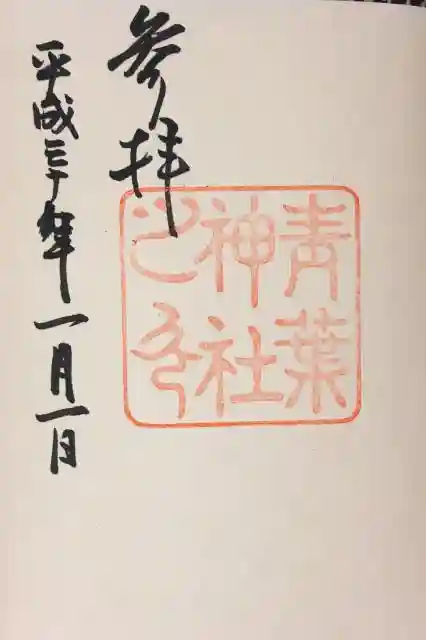 参拝
青葉
神社
之印
平成三十年一月一日